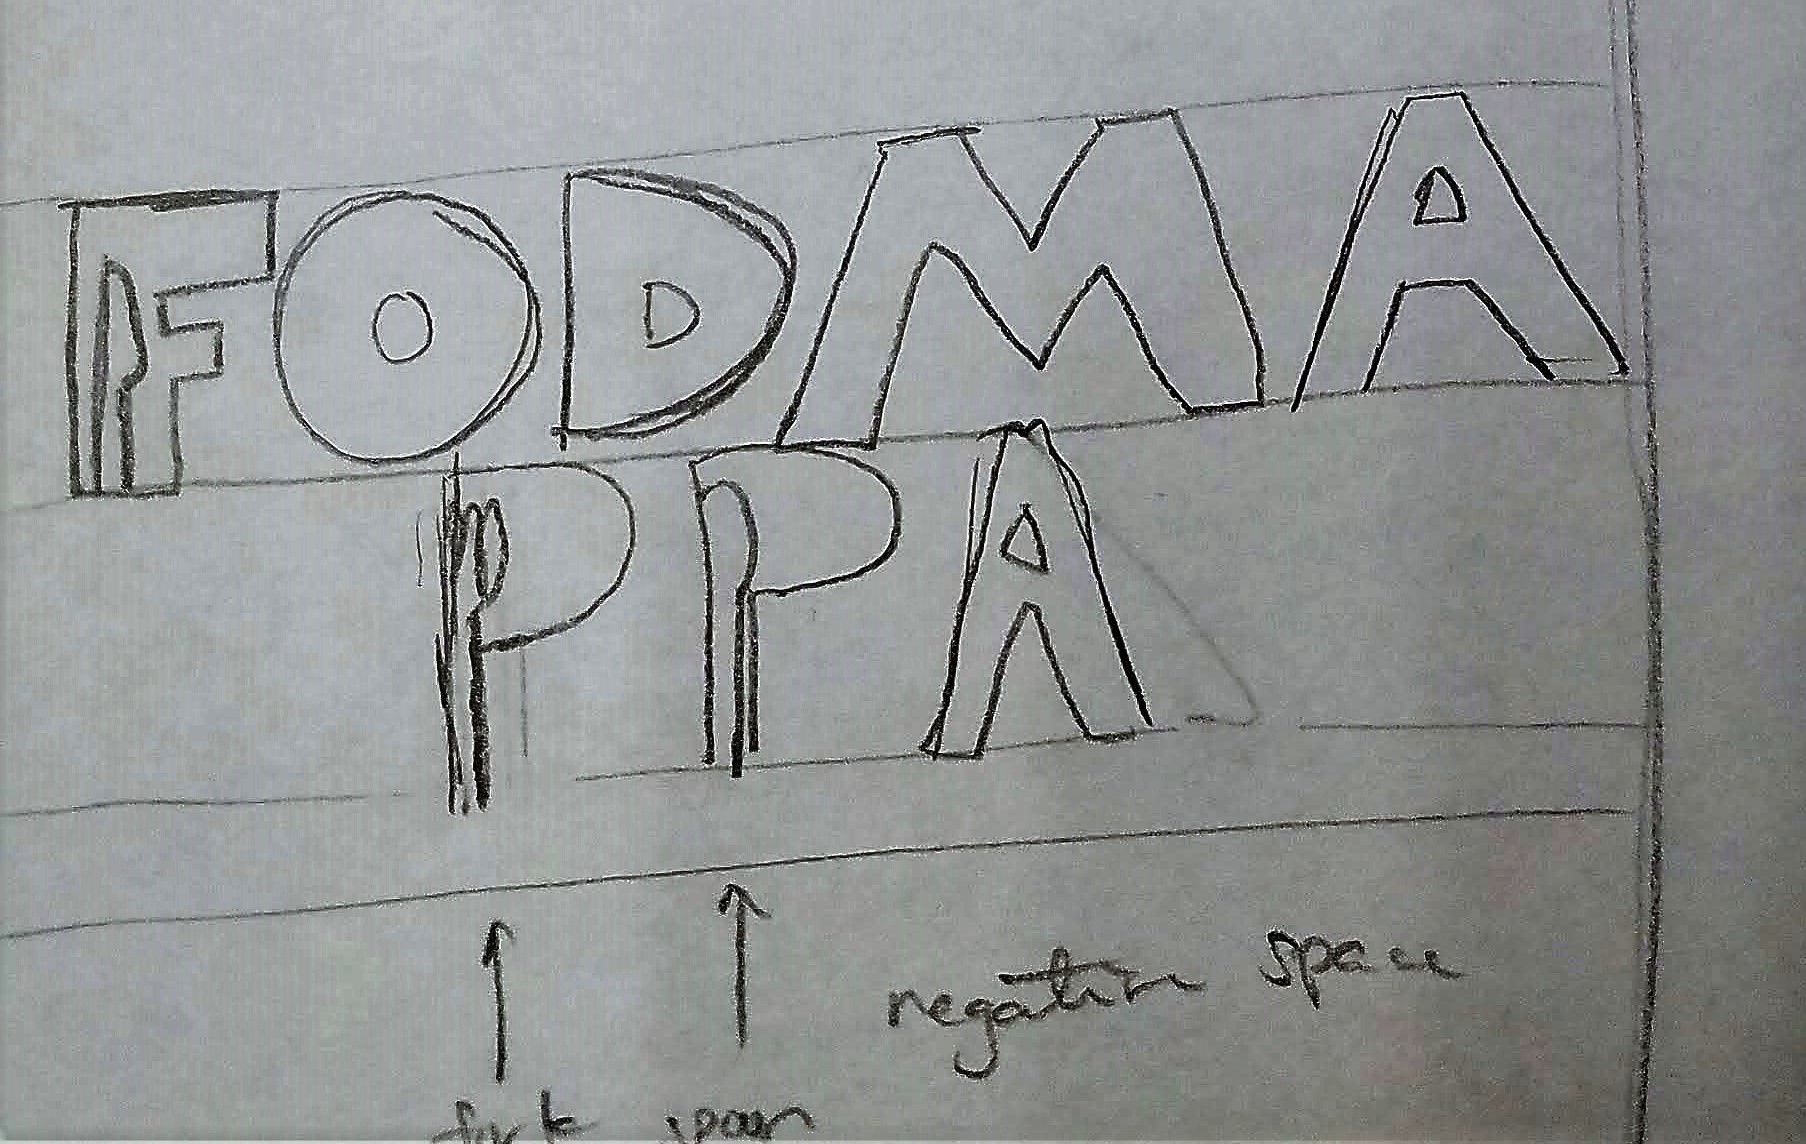 FODMA
PPA
negative space
fork spoon